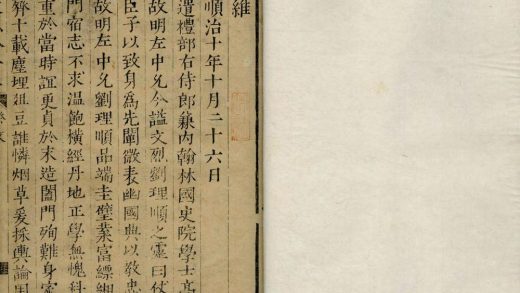 維
順治十年十月二十六日
遣禮部右侍郎兼內翰林國史院學士高
故明左中允今謚文烈劉理順之靈曰伏
臣子以致身為先闡微表幽國典以敎忠
故明左中允劉理順品端圭璧業富縹緗
門宿志不求溫飽橫經丹地正學無愧科
重於當時誼更貞於末造闔門殉難身
齊十載塵埋俎豆誰憐烟草爰採輿論用